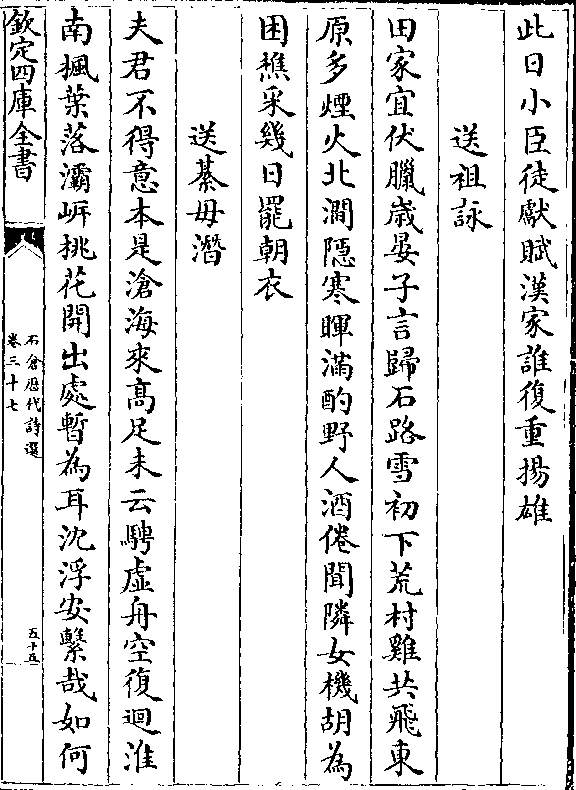 此日小臣徒獻賦漢家誰復重揚雄
送祖詠
田家宜伏臘歲晏子言歸石路雪初下荒村雞共飛東
原多煙火北澗隱寒暉滿酌野人酒倦聞隣女機胡為
困樵采幾日罷朝衣
送綦毋潛
夫君不得意本是滄海來高足未云騁虛舟空復迴淮
南楓葉落灞岍挑花開出處暫為耳沈浮安繫哉如何
欽定四庫全書
石倉歴代詩選
卷三十七
五十五